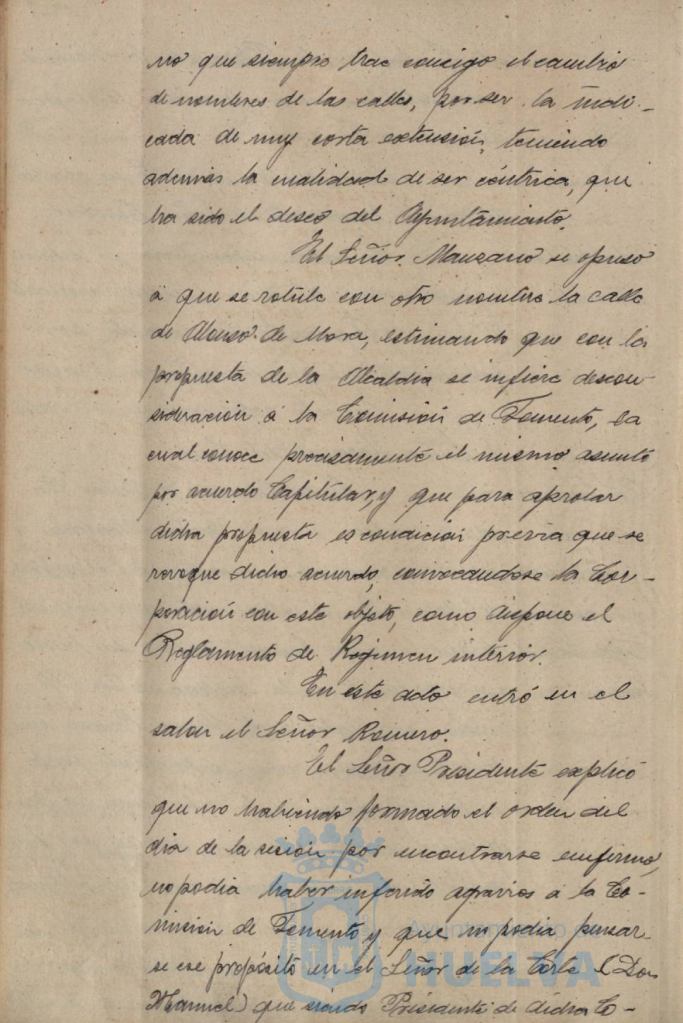 no que siempre trae consigo el cambio
de nombres de las calles, por ser la indi-
cada de muy corta extensión, teniendo
además la cualidad de ser céntrica, que
ha sido el deseo del Ayuntamiento.
El Señor Manzano se opuso
a que se rotule con otro nombre la calle
de Alonso de Mora, estimando que con la
propuesta de la Alcaldia se infiere descon-
sideración á la Comisión de Fomento, la
cual conoce precisamente el mismo asunto
por acuerdo Capitular, y que para aprobar
dicha propuesta es condición previa que se
revoque dicho acuerdo, convocandose la Cor-
poración con este objeto, como dispone el
Reglamento de Regimen interior.
En este acto entró en el
salon el Señor Romero.
El Señor Presidente explicó
que no habiendo formado el orden del
dia de la sesión por encontrarse enfermo,
no podia haber inferido agravios á la Co-
misión de Fomento y que no podia pensar-
se ese propósito en el Señor de la Corte (Don
Manuel) que siendo Presidente de dicha Co-
Ayuntamiento
HUELVA